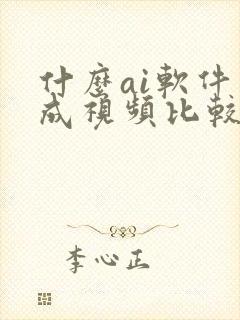 什麼ai軟件
成視頻比較
李心正